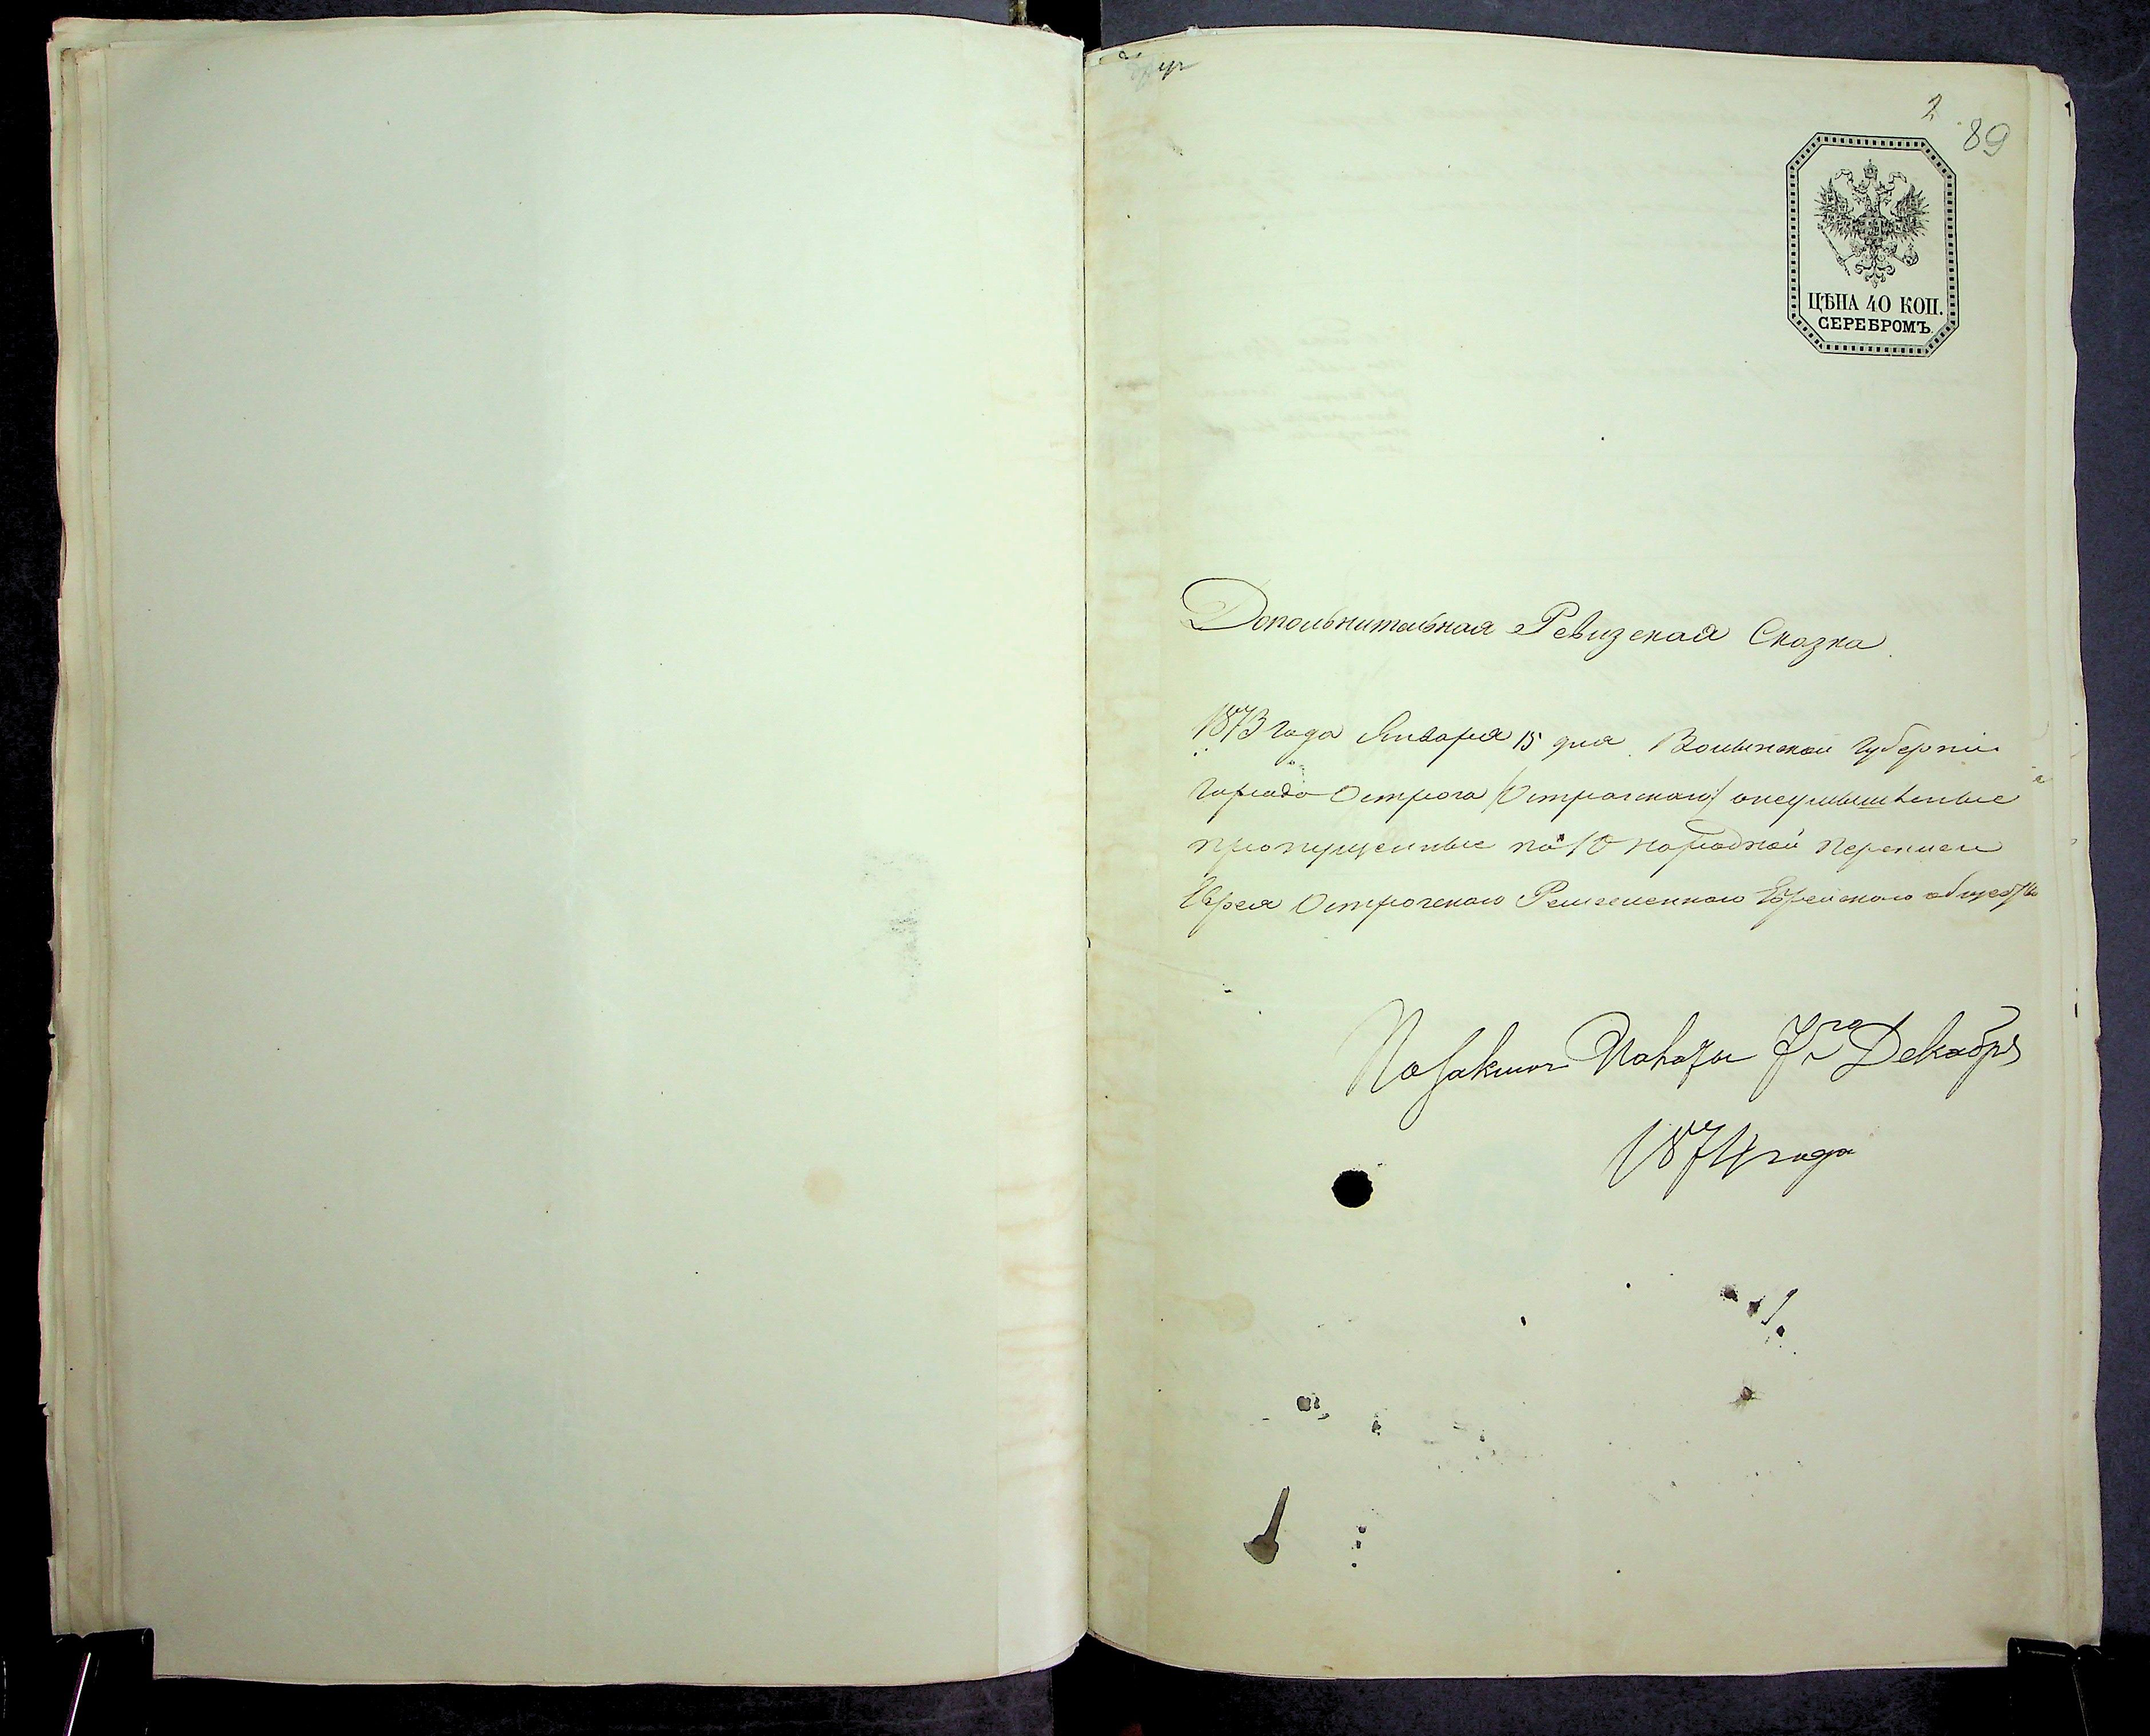 2
89
ЦѢНА 40 КОП.
СЕРЕБРОМЪ.
Допольнительная Ревизская Сказка
1873 года Января 15 дня Волынской губерніи
Города Острога (Острогскаго)
пропущенные по 10 народной переписи
Еврея Острогскаго Еврейскаго общества
Декабря
1874 года